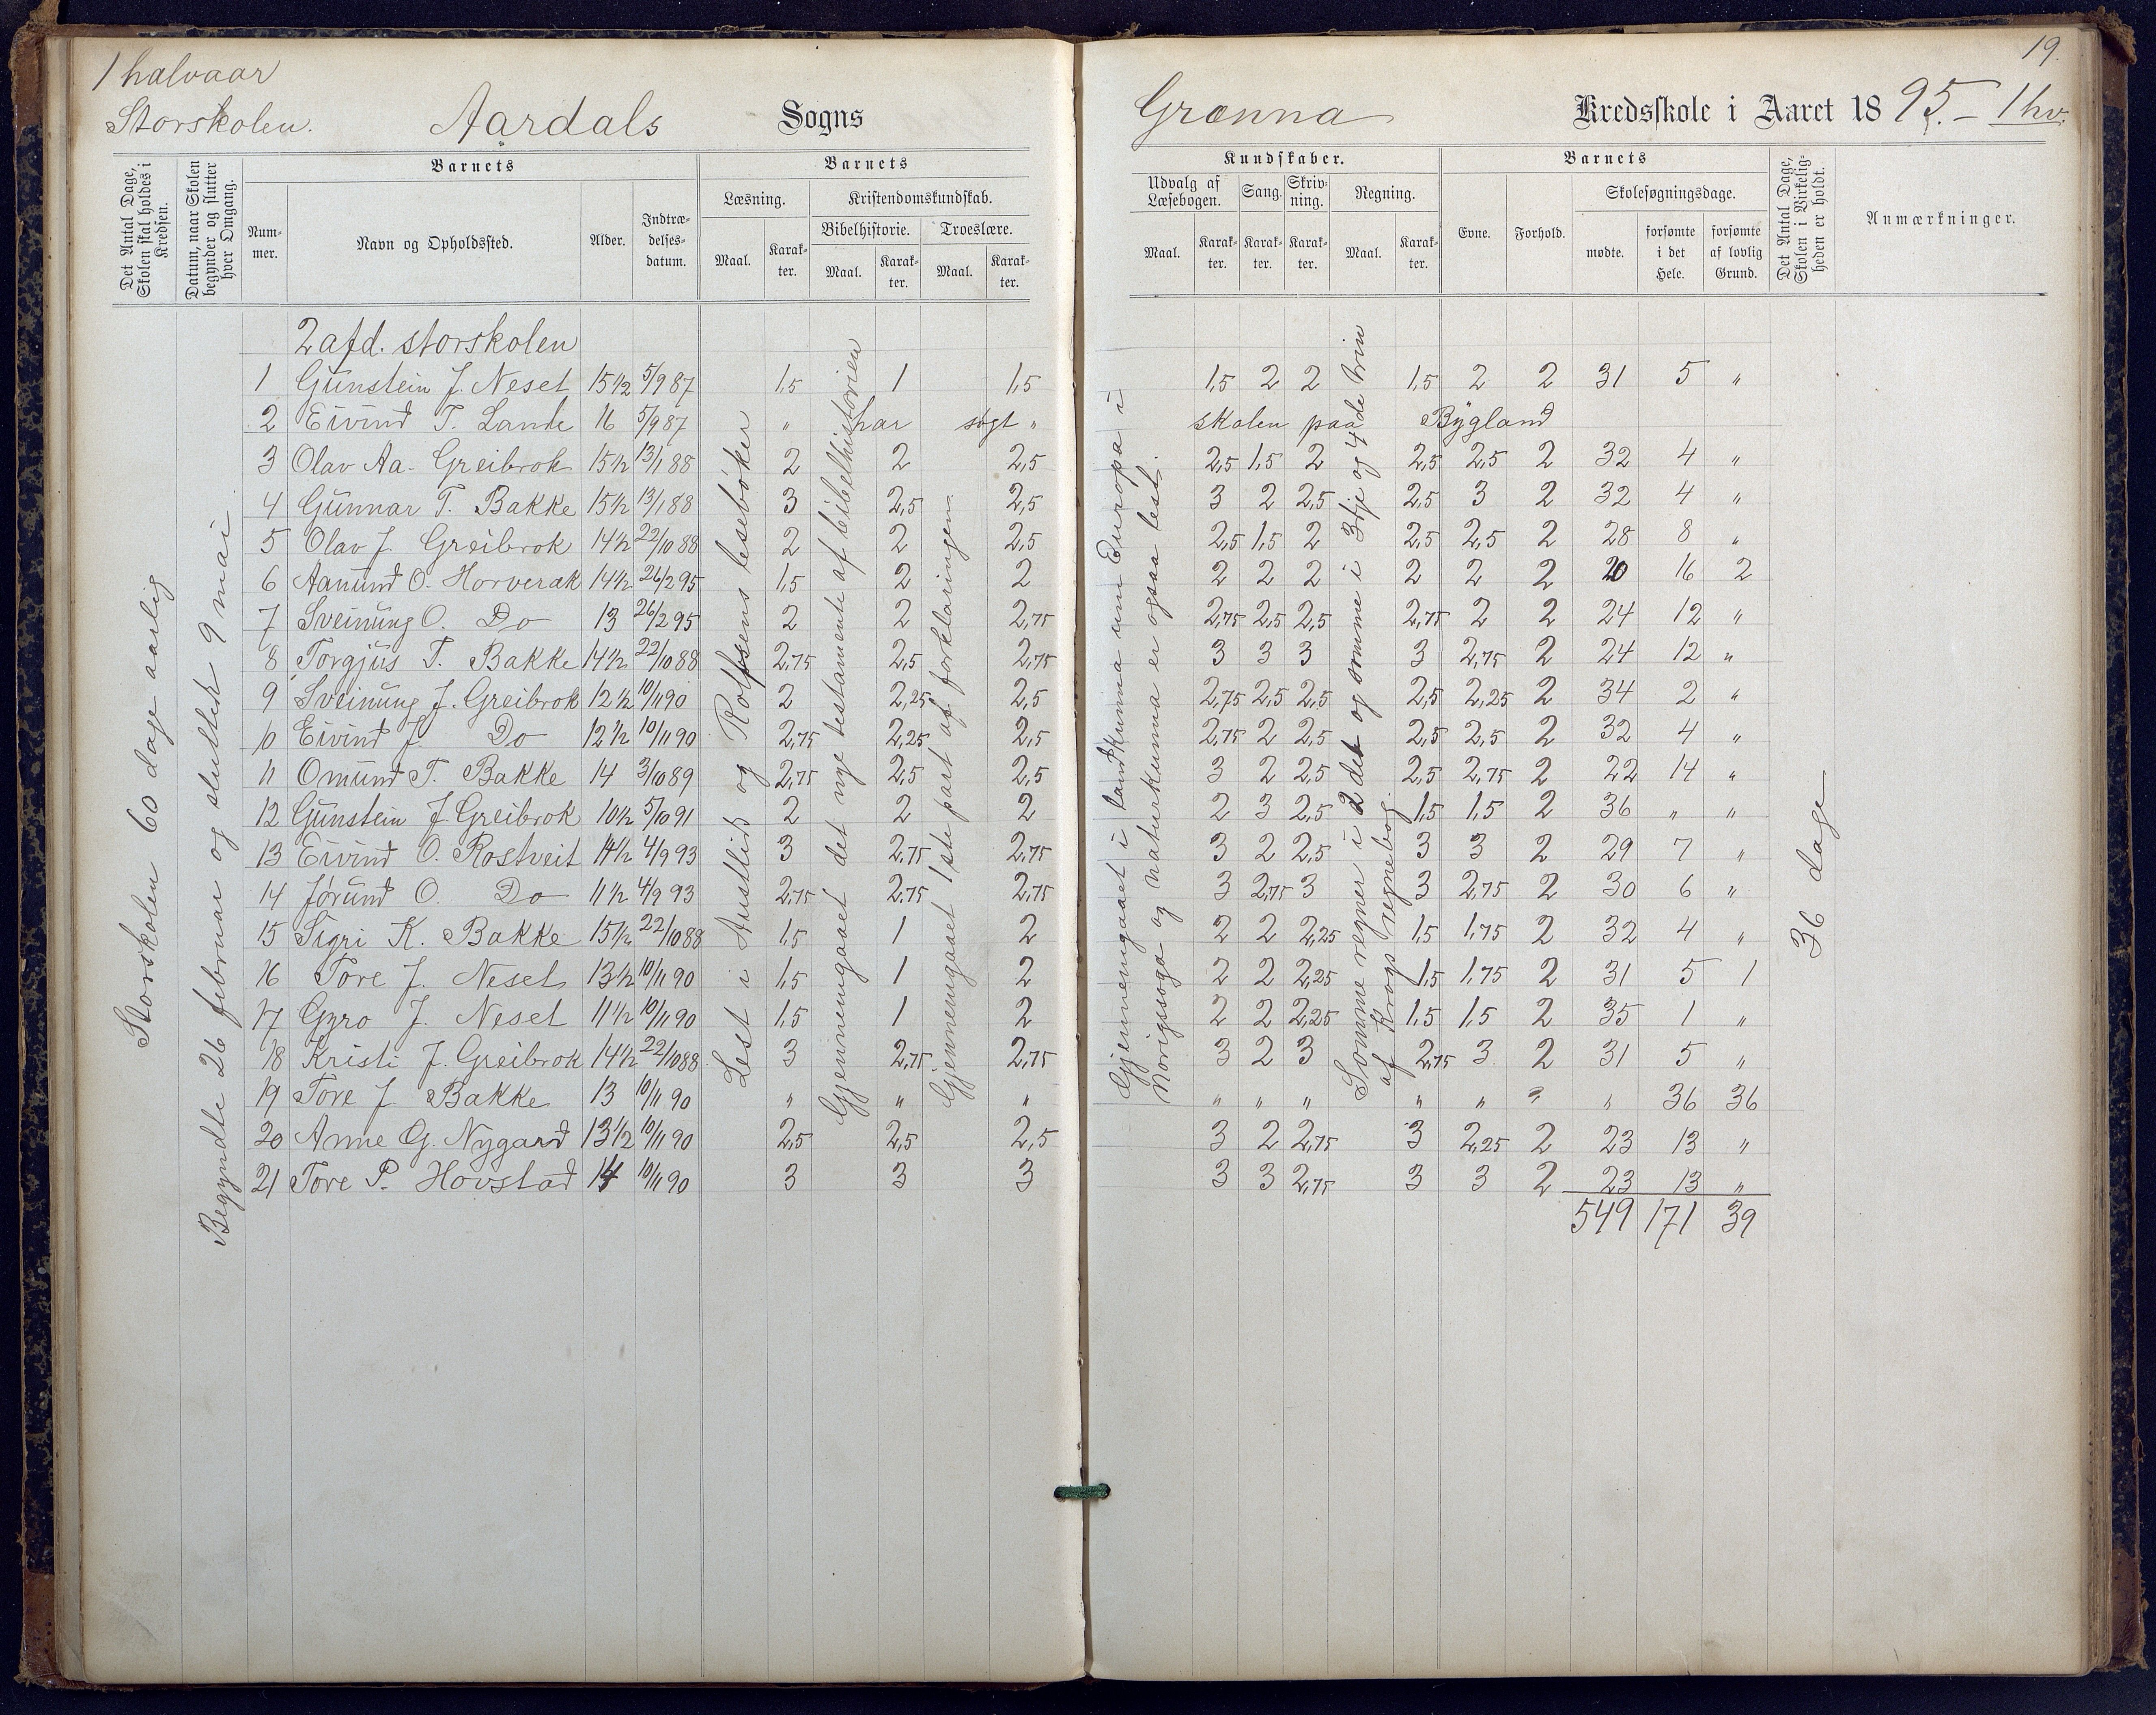 1 halvaar
Storskolen.
Aardals Sogns
Det Antal Dage, Skolen skal holdes i Kredsen.
Datum, naar Skolen begynder og slutter hver Omgang.
Barnets
Num-mer.
Navn og Opholdssted.
Alder.
Indtræ-delses-datum.
Barnets
Læsning.
Kristendomskundskab.
Bibelhistorie. Troeslære.
Maal. Karak-ter. Maal. Karak-ter. Maal. Karak-ter.
2 afd. storskolen
1 Gunstein J. Neset 15 1/2 5/9 87 1,5 1 1,5
2 Eivind T. Lande 16 5/9 87 " har søgt "
3 Olav Aa. Greibrok 15 1/2 13/1 88 2 2 2,5
4 Gunnar T. Bakke 15 1/2 13/1 88 3 2,5 2,5
5 Olav J. Greibrok 14 1/2 22/10 88 2 2 2,5
6 Aanund O. Horverak 14 1/2 26/2 95 1,5 2 2
7 Sveinung O. Do 13 26/2 95 2 2 2,75
8 Torgjus T. Bakke 14 1/2 22/10 88 2,75 2,5 2,75
9 Sveinung J. Greibrok 12 1/2 10/11 90 2 2,25 2,5
10 Eivind J. Do 12 1/2 10/11 90 2,75 2,25 2,5
11 Omund T. Bakke 14 3/10 89 2,75 2,5 2,5
12 Gunstein J Greibrok 10 1/2 5/10 91 2 2 2
13 Eivind O. Rostveit 14 1/2 4/9 93 3 2,75 2,75
14 Jørund O. Do 11 1/2 4/9 93 2,75 2,75 2,75
15 Sigri K. Bakke 15 1/2 22/10 88 1,5 1 2
16 Tore J. Neset 13 1/2 10/11 90 1,5 1 2
17 Gyro J. Neset 11 1/2 10/11 90 1,5 1 2
18 Kristi J. Greibrok 14 1/2 22/10 88 3 2,75 2,75
19 Tore J Bakke 13 10/11 90 " " "
20 Anne G. Nygard 13 1/2 10/11 90 2,5 2,5 2,5
21 Tore P. Hovstad 14 10/11 90 3 3 3
Storskolen 60 dage aarlig
Begyndte 26 februar og sluttede 9 mai
Lest i Austlids og Rolfsens lesebøker
Gjennemgaaet det nye testamente af bibelhistorien
Gjennemgaaet 1ste part af forklaringen
19.
Grænna Kredsskole i Aaret 18 95. – 1 hv.
Kundskaber.
Udvalg af Læsebogen. Sang. Skriv-ning. Regning.
Maal. Karak-ter. Karak-ter. Karak-ter. Maal. Karak-ter.
Barnets
Evne. Forhold.
Skolesøgningsdage.
mødte. forsømte i det Hele. forsømte af lovlig Grund.
Det Antal Dage, Skolen i Virkelig-heden er holdt.
Anmærkninger.
1,5 2 2 1,5 2 2 31 5 "
skolen paa Bygland
2,5 1,5 2 2,5 2,5 2 32 4 "
3 2 2,5 2,5 3 2 32 4 "
2,5 1,5 2 2,5 2,5 2 28 8 "
2 2 2 2 2 2 20 16 2
2,75 2,5 2,5 2,75 2 2 24 12 "
3 3 3 3 2,75 2 24 12 "
2,75 2,5 2,5 2,5 2,25 2 34 2 "
2,75 2 2,5 2,5 2,5 2 32 4 "
3 2 2,5 2,5 2,75 2 22 14 "
2 3 2,5 1,5 1,5 2 36 " "
3 2 2,5 3 3 2 29 7 "
3 2,75 3 3 2,75 2 30 6 "
2 2 2,25 1,5 1,75 2 32 4 "
2 2 2,25 1,5 1,75 2 31 5 1
2 2 2,25 1,5 1,5 2 35 1 "
3 2 3 2,75 3 2 31 5 "
" " " " " " " 36 36
3 2 2,75 3 2,25 2 23 13 "
3 3 2,75 3 3 2 23 13 "
549 171 39
Gjennemgaaet i landkunna um Europa i
Norigssoga og naturkunna er ogsaa lest.
Somme regner i 2det og somme i 3dje og 4de trin
af Krogs regnebog.
36 dage